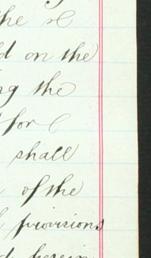 the
on the
the
for
shall
of the
provisions
herein